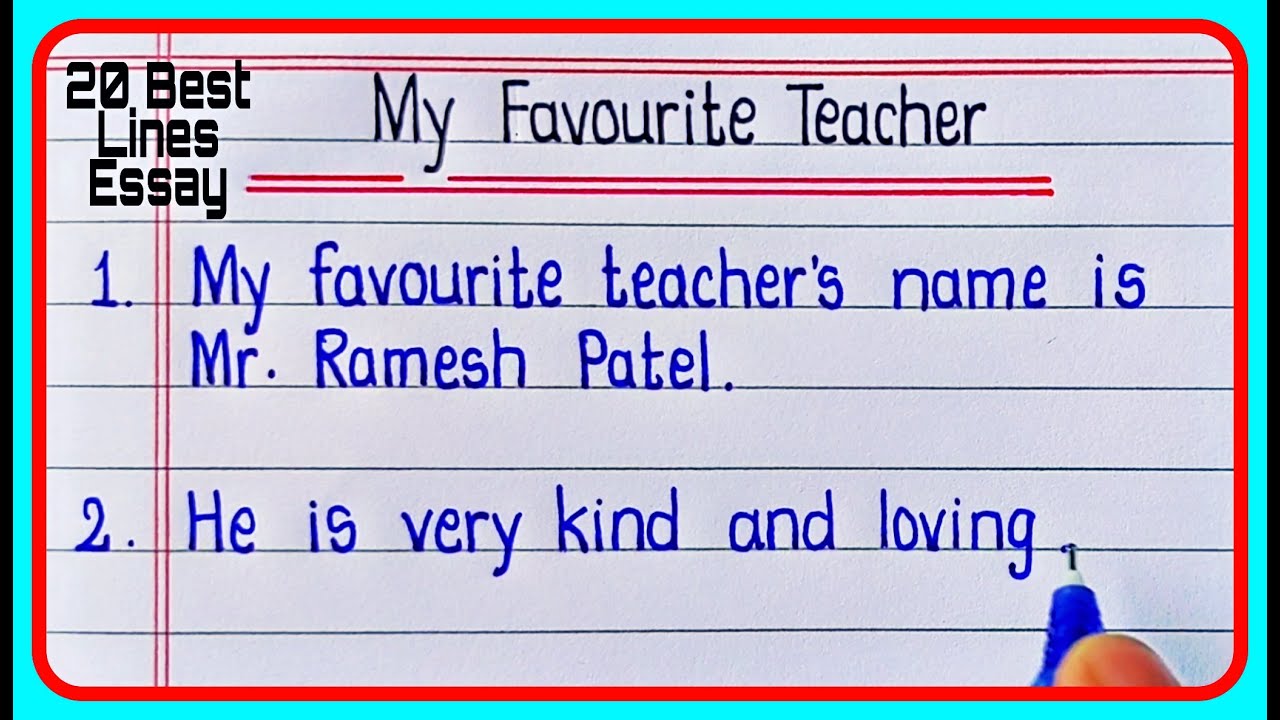 20 Best
Lines
Essay
My Favourite Teacher
1. My favourite teacher's name is
Mr. Ramesh Patel.
2. He is very kind and loving.